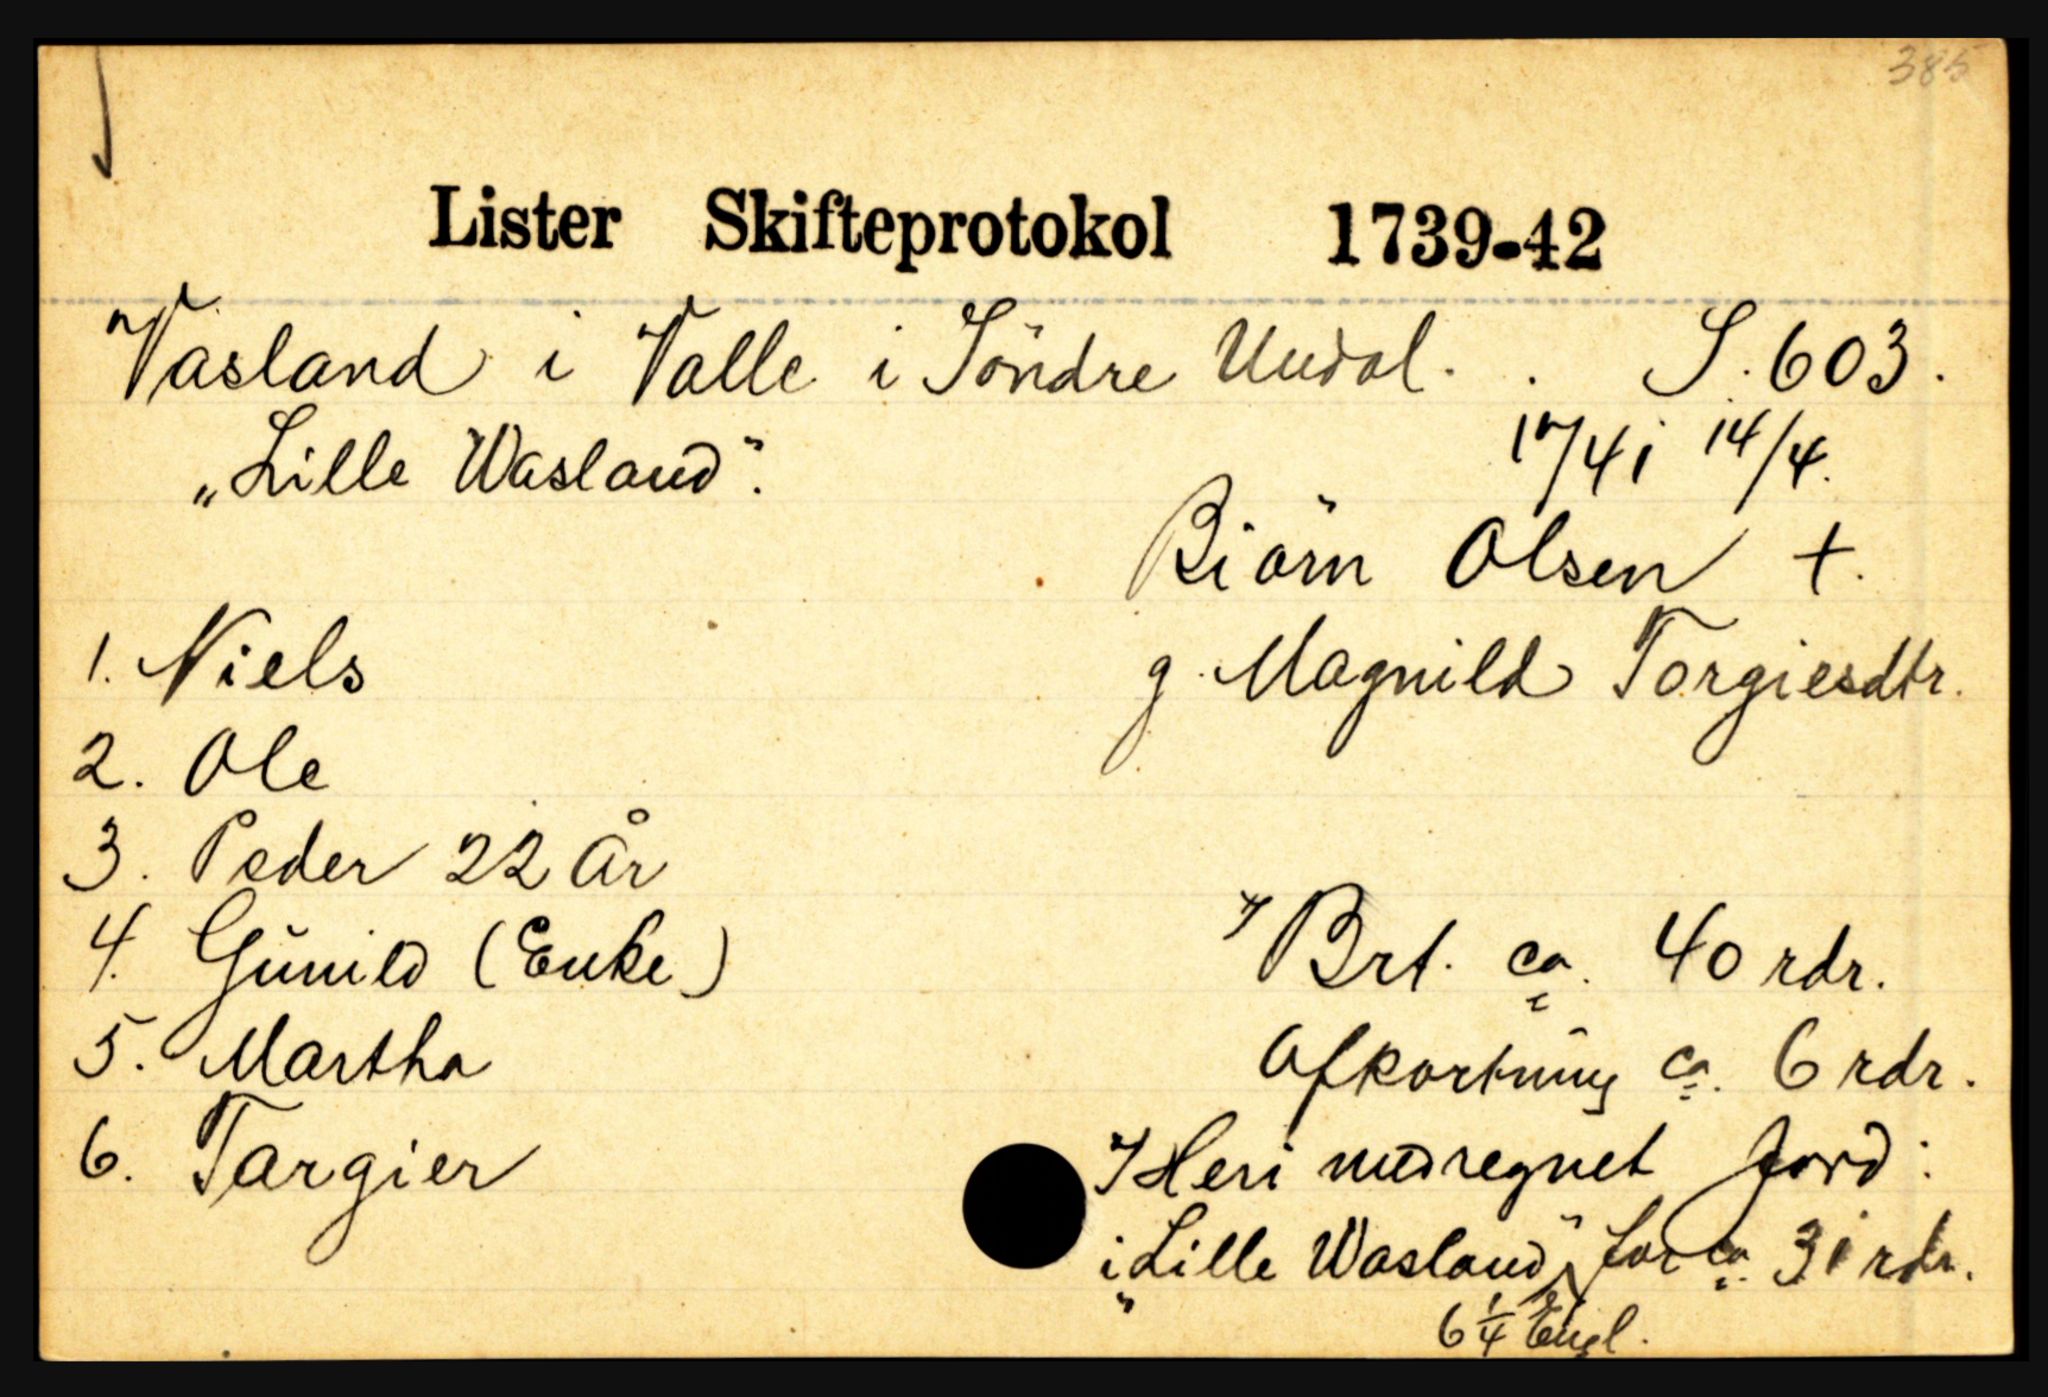 385
Lister Skifteprotokol 1739-42
Vasland i Valle i Söndre Undal. S. 603.
"Lille Wasland". 17/41 14/4.
Biörn Olsen +.
1. Niels g. Magnild Torgiesdtr.
2. Ole
3. Peder 22 År
4. Gŭnild (Enke) Brt. ca. 40 rdr.
5. Martha Afkortning ca. 6 rdr.
6. Targier Heri medregnet Jord:
i "Lille Wasland" for ca. 31 rdr.
6 1/4 Engl.